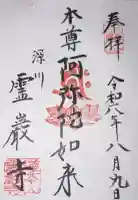 奉拝
令和八年八月九日
本尊阿弥陀如来
深川
霊巌寺